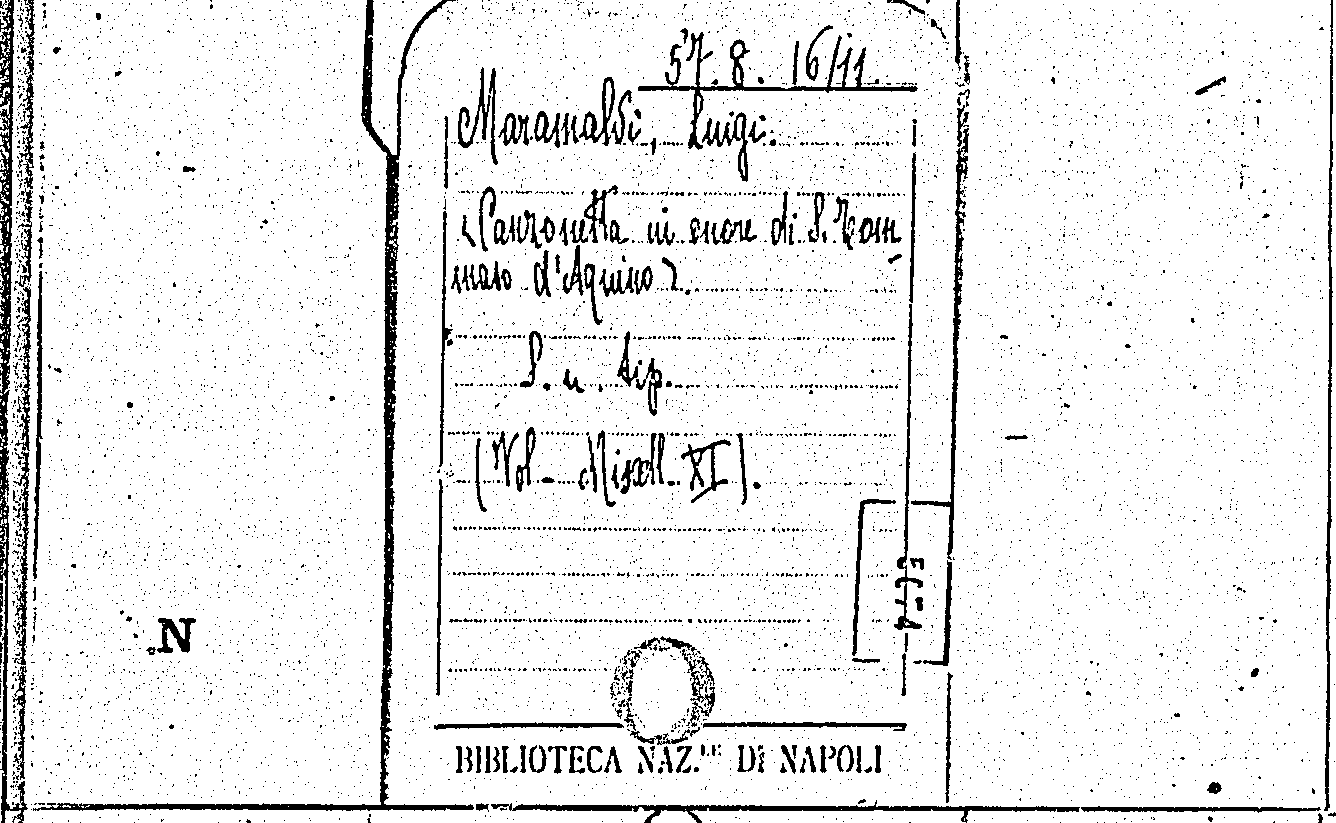 57. 8. 16/11.
Maramaldi, Luigi.
‹Canzonetta in onore di S. Tom
maso d'Aquino›.
S. n. tip.
(Vol. Miscell. XI).
N
BIBLIOTECA NAZ.LE DI NAPOLI